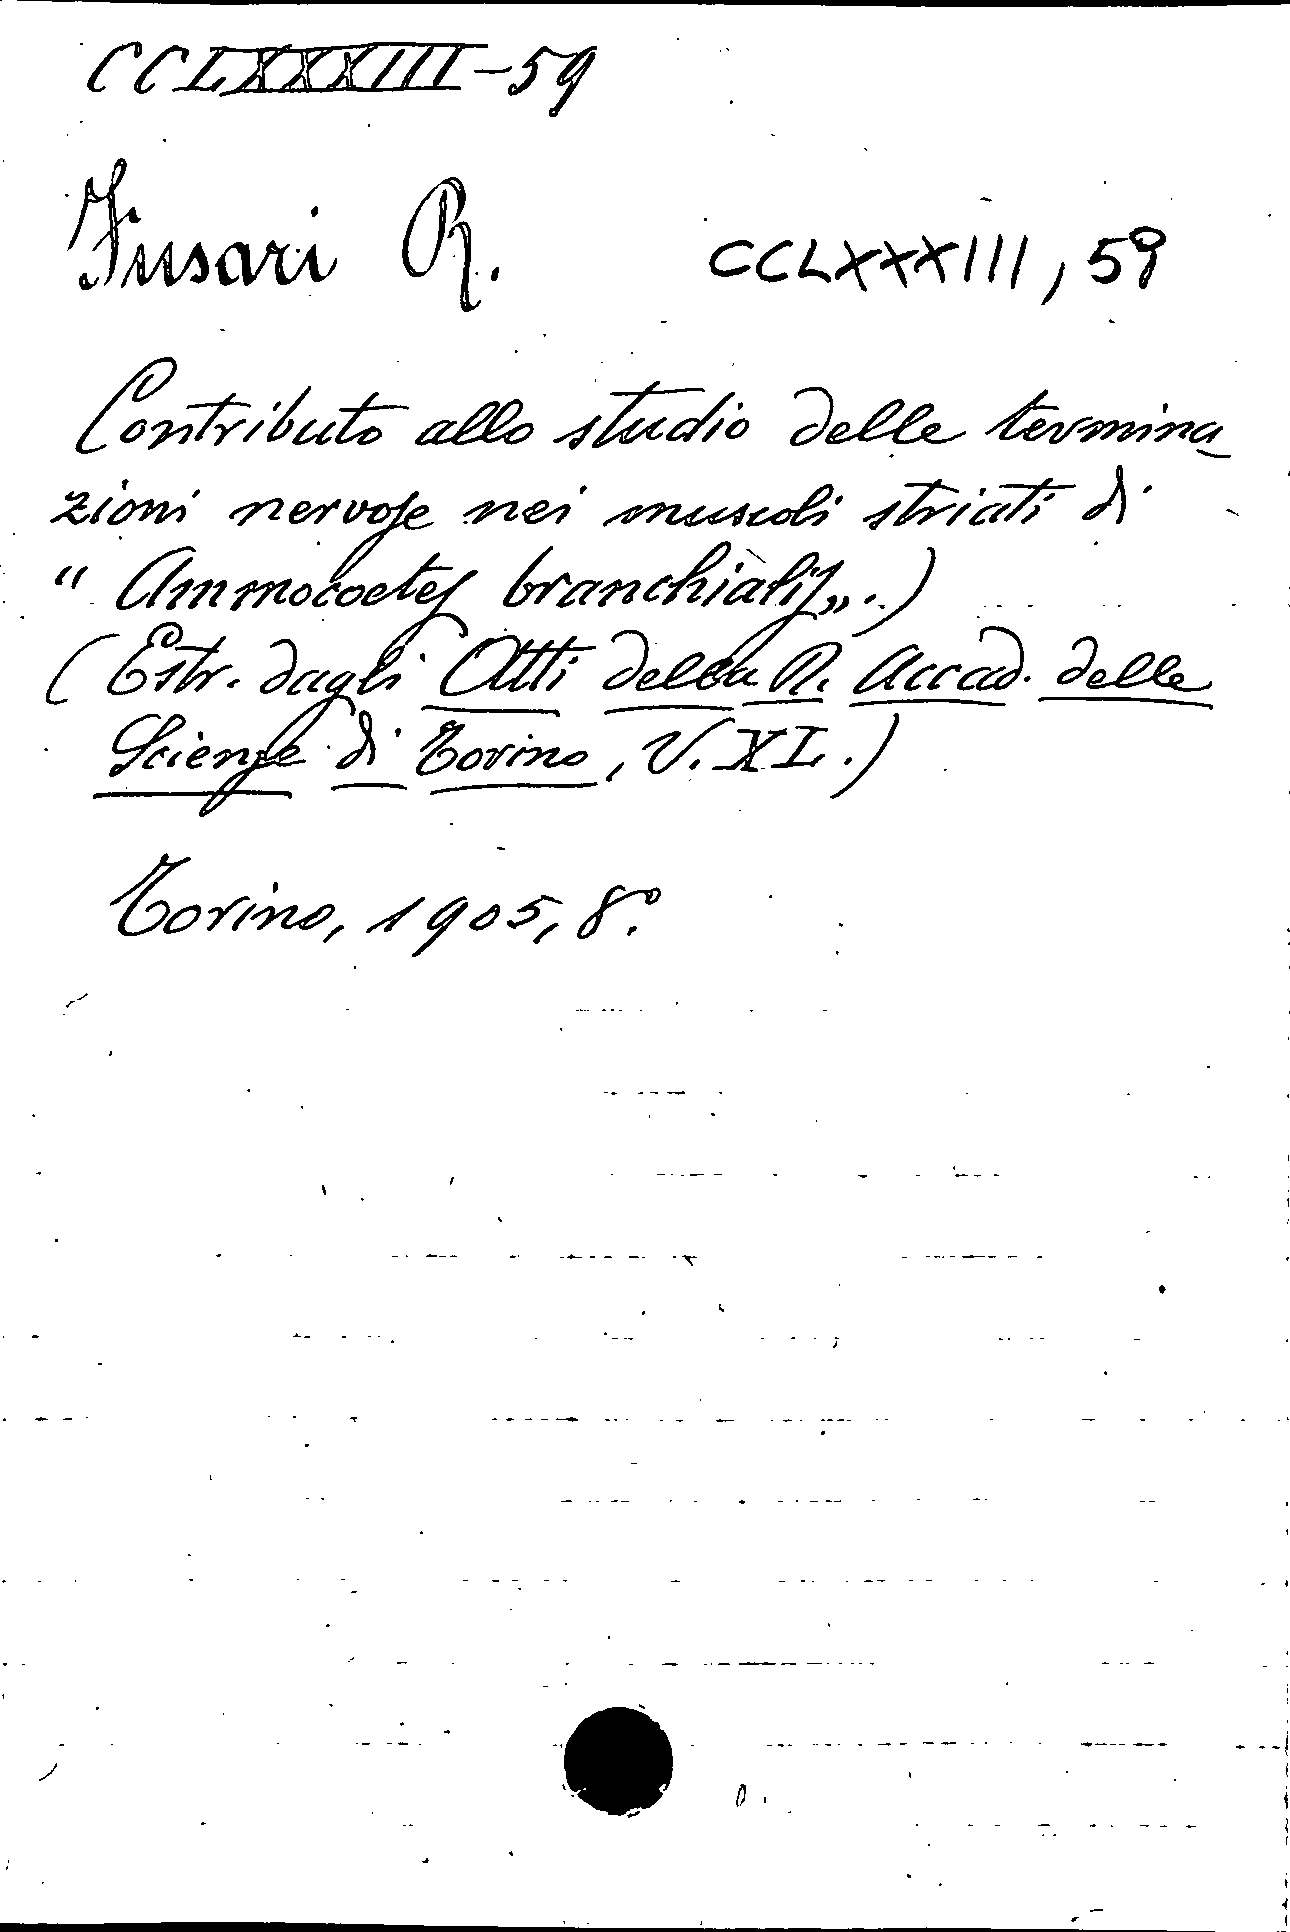 CCLXXXIII-59
Fusari R. CCLXXXIII, 59
Contributo allo studio delle termina
zioni nervose nei muscoli striati di
“ Ammocoetes branchialis„.)
(Estr. dagli Atti della R. Accad. delle
Scienze di Torino, V. XL.)
Torino, 1905, 8°.